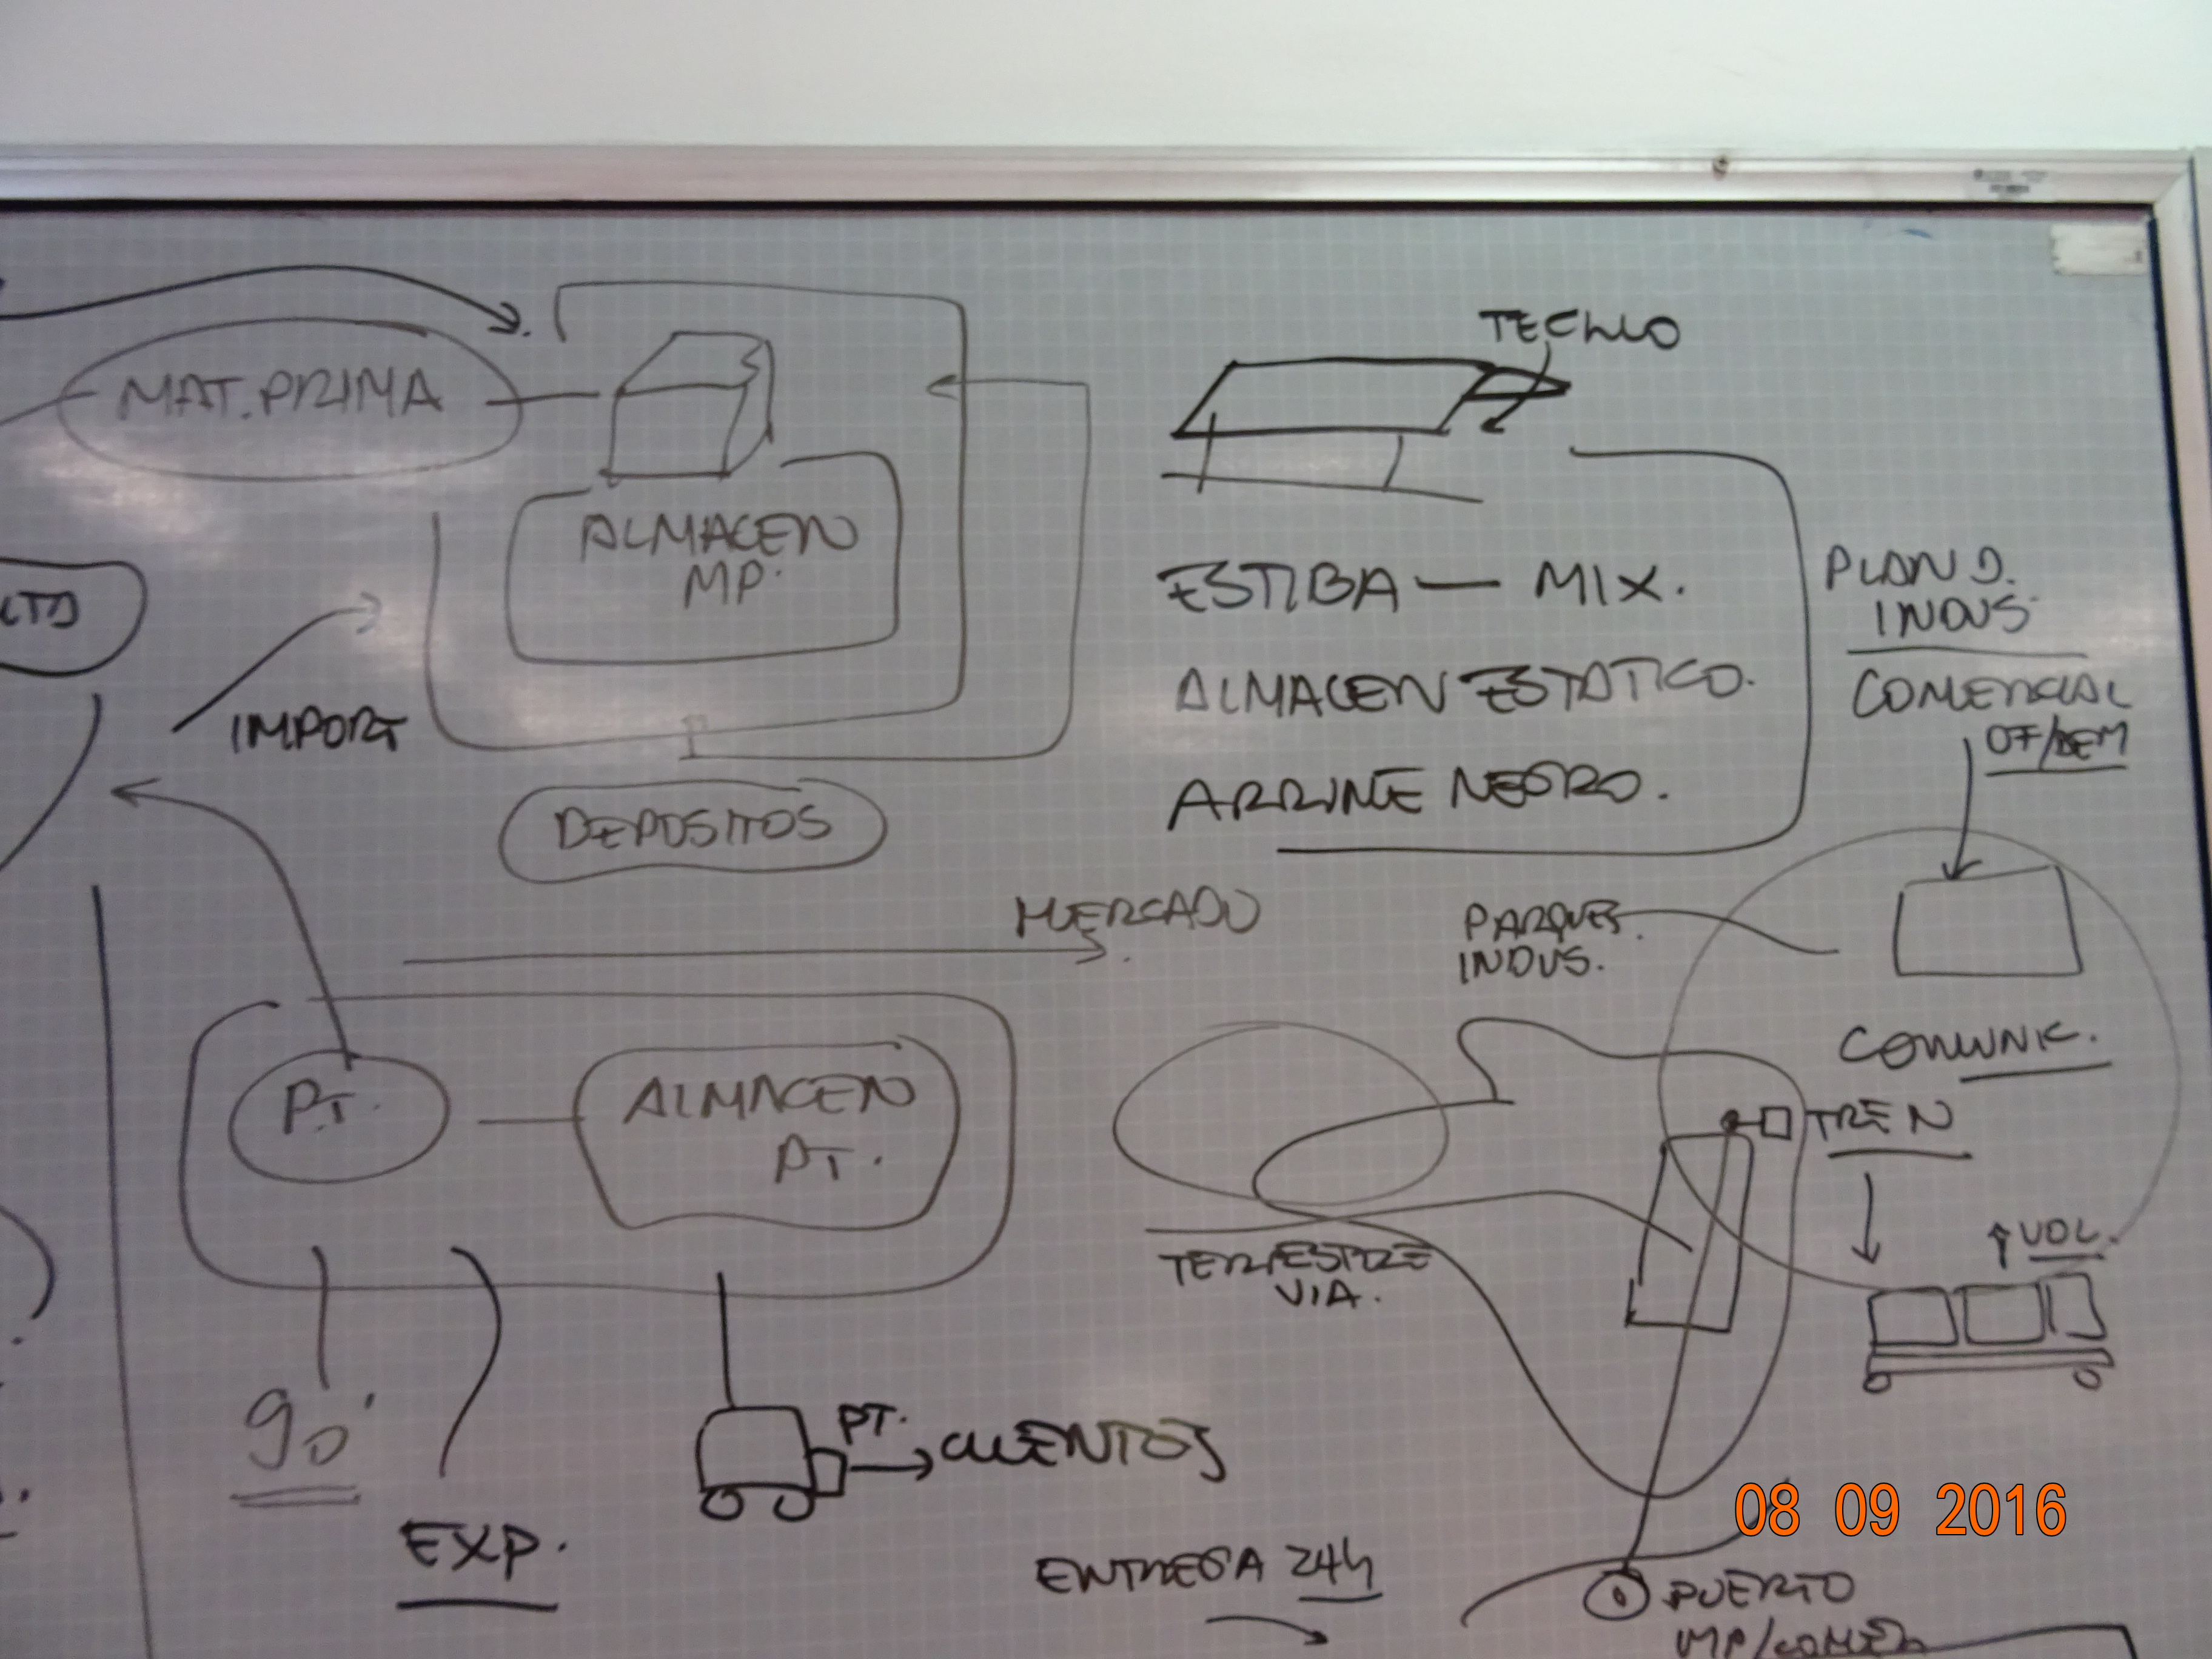 TECHO
MAT. PRIMA
ALMACEN
MP.
ESTIBA — MIX.
ALMACEN ESTATICO.
NEGRO.
PLAN D.
INDUS.
COMERCIAL
OF/DEM
IMPORT
DEPOSITOS
MERCADO
PARQUES
INDUS.
COMUNIC.
TREN
↑ VOL.
PT.
ALMACEN
PT.
TERRESTRE
VIA.
90'
EXP.
PT.
CLIENTES
ENTREGA 24h
PUERTO
08 09 2016